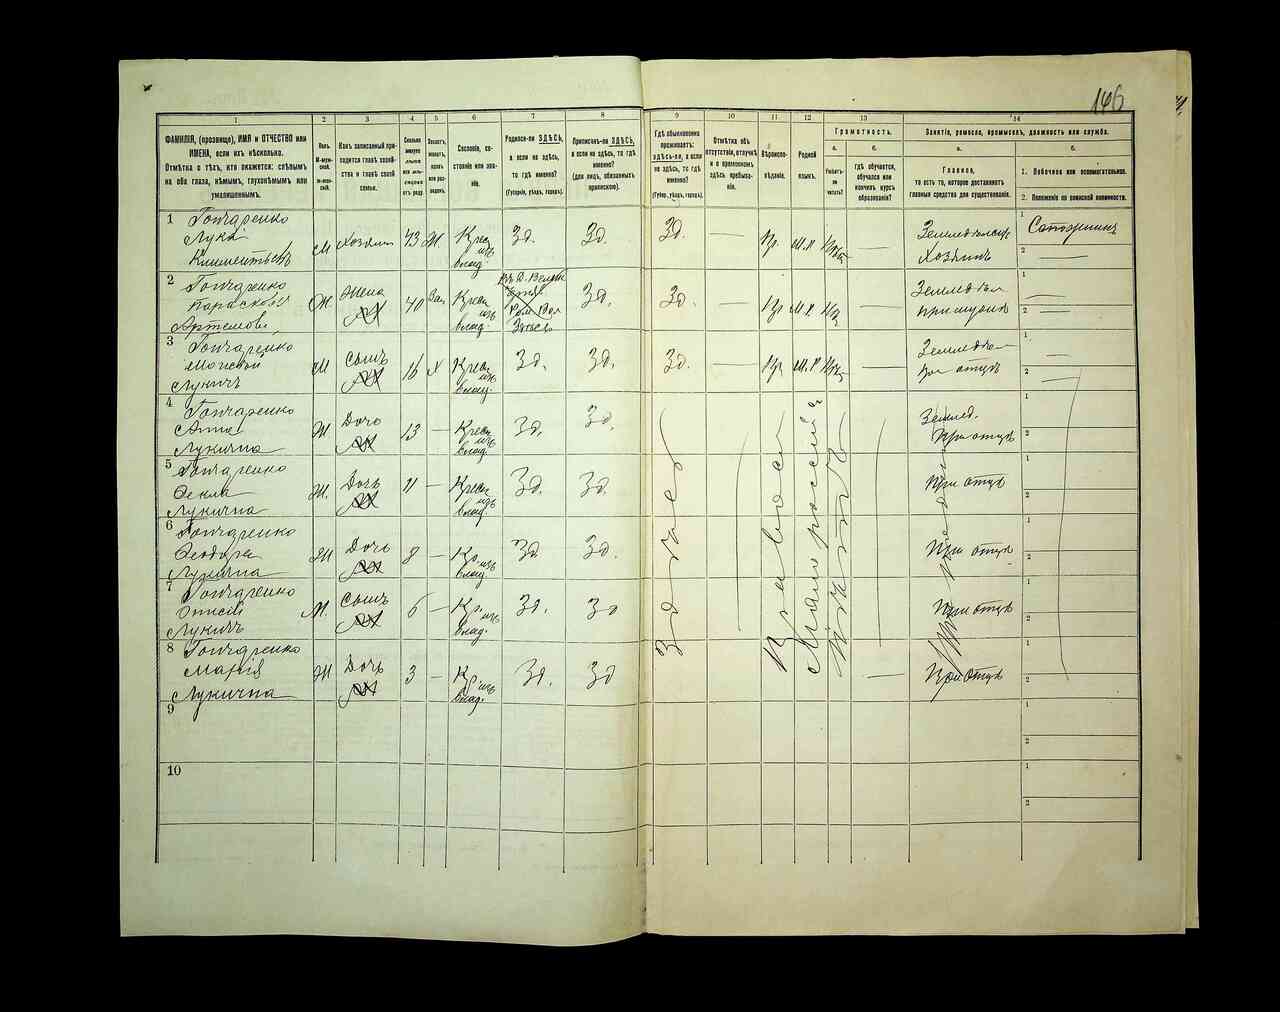 146
1
2
3
4
5
6
7
8
9
10
11
12
13
14
ФАМИЛІЯ, (прозвище), ИМЯ и ОТЧЕСТВО или
ИМЕНА, если ихъ нѣсколько.
Отмѣтка о тѣхъ, кто окажется: слѣпымъ
на оба глаза, нѣмымъ, глухонѣмымъ или
умалишеннымъ.
Полъ.
М-муж-
ской.
Ж-жен-
скій.
Какъ записанный при-
ходится главѣ хозяй-
ства и главѣ своей
семьи.
Сословіе, со-
стояніе или зва-
ніе.
Родился-ли ЗДѢСЬ,
а если не здѣсь,
то гдѣ именно?
(Губернія, уѣздъ, городъ).
Приписанъ-ли ЗДѢСЬ,
а если не здѣсь, то гдѣ
именно?
(для лицъ, обязанныхъ
припискою).
Гдѣ обыкновенно
проживаетъ:
здѣсь-ли, а если
не здѣсь, то гдѣ
именно?
(Губер., уѣздъ, городъ).
Отмѣтка объ
отсутствіи, отлучкѣ
и о временномъ
здѣсь пребыва-
ніи.
Вѣроиспо-
вѣданіе.
Родной
языкъ.
Грамотность.
а.
Умѣетъ-
ли
читать?
б.
Гдѣ обучается,
обучался или
кончилъ курсъ
образованія?
Занятіе, ремесло, промыселъ, должность или служба.
а.
Главное,
то есть то, которое доставляетъ
главныя средства для существованія.
б.
1. Побочное или вспомогательное.
2. Положеніе по воинской повинности.
1 Гончаренко
Лука
Климентьевъ
М Хозяинъ 43 Ж Крес изъ влад. Зд. Зд. Зд. — Пр. М.Р. — Хозяинъ
2 Гончаренко
Параскови
Артемова
Ж Жена 40 Зам Крес изъ влад. Зд. Зд. — Пр М.Р. —
3 Гончаренко
Лукичъ
М Сынъ 16 Х Крес. изъ влад. Зд. Зд. Зд. — Пр. М.Р. — при отцѣ
4 Гончаренко
Анна
Лукична
Ж Дочь 13 — Крес изъ влад. Зд. Зд. Землед. При отцѣ
5 Гончаренко
Фекла
Лукична
Ж. Дочь 11 — Крес изъ влад. Зд. Зд. При отцѣ
6 Гончаренко
Феодора
Лукична
Ж Дочь 8 — Кр. изъ влад. Зд Зд. При отцѣ
7 Гончаренко
Лукичъ
М. Сынъ 6 — Кр. изъ влад. Зд. Зд При отцѣ
8 Гончаренко
Марія
Лукична
Ж Дочь 3 — Кр. изъ влад. Зд. Зд — При Отцѣ
Здѣсь
Православ
Малороссій
9
10